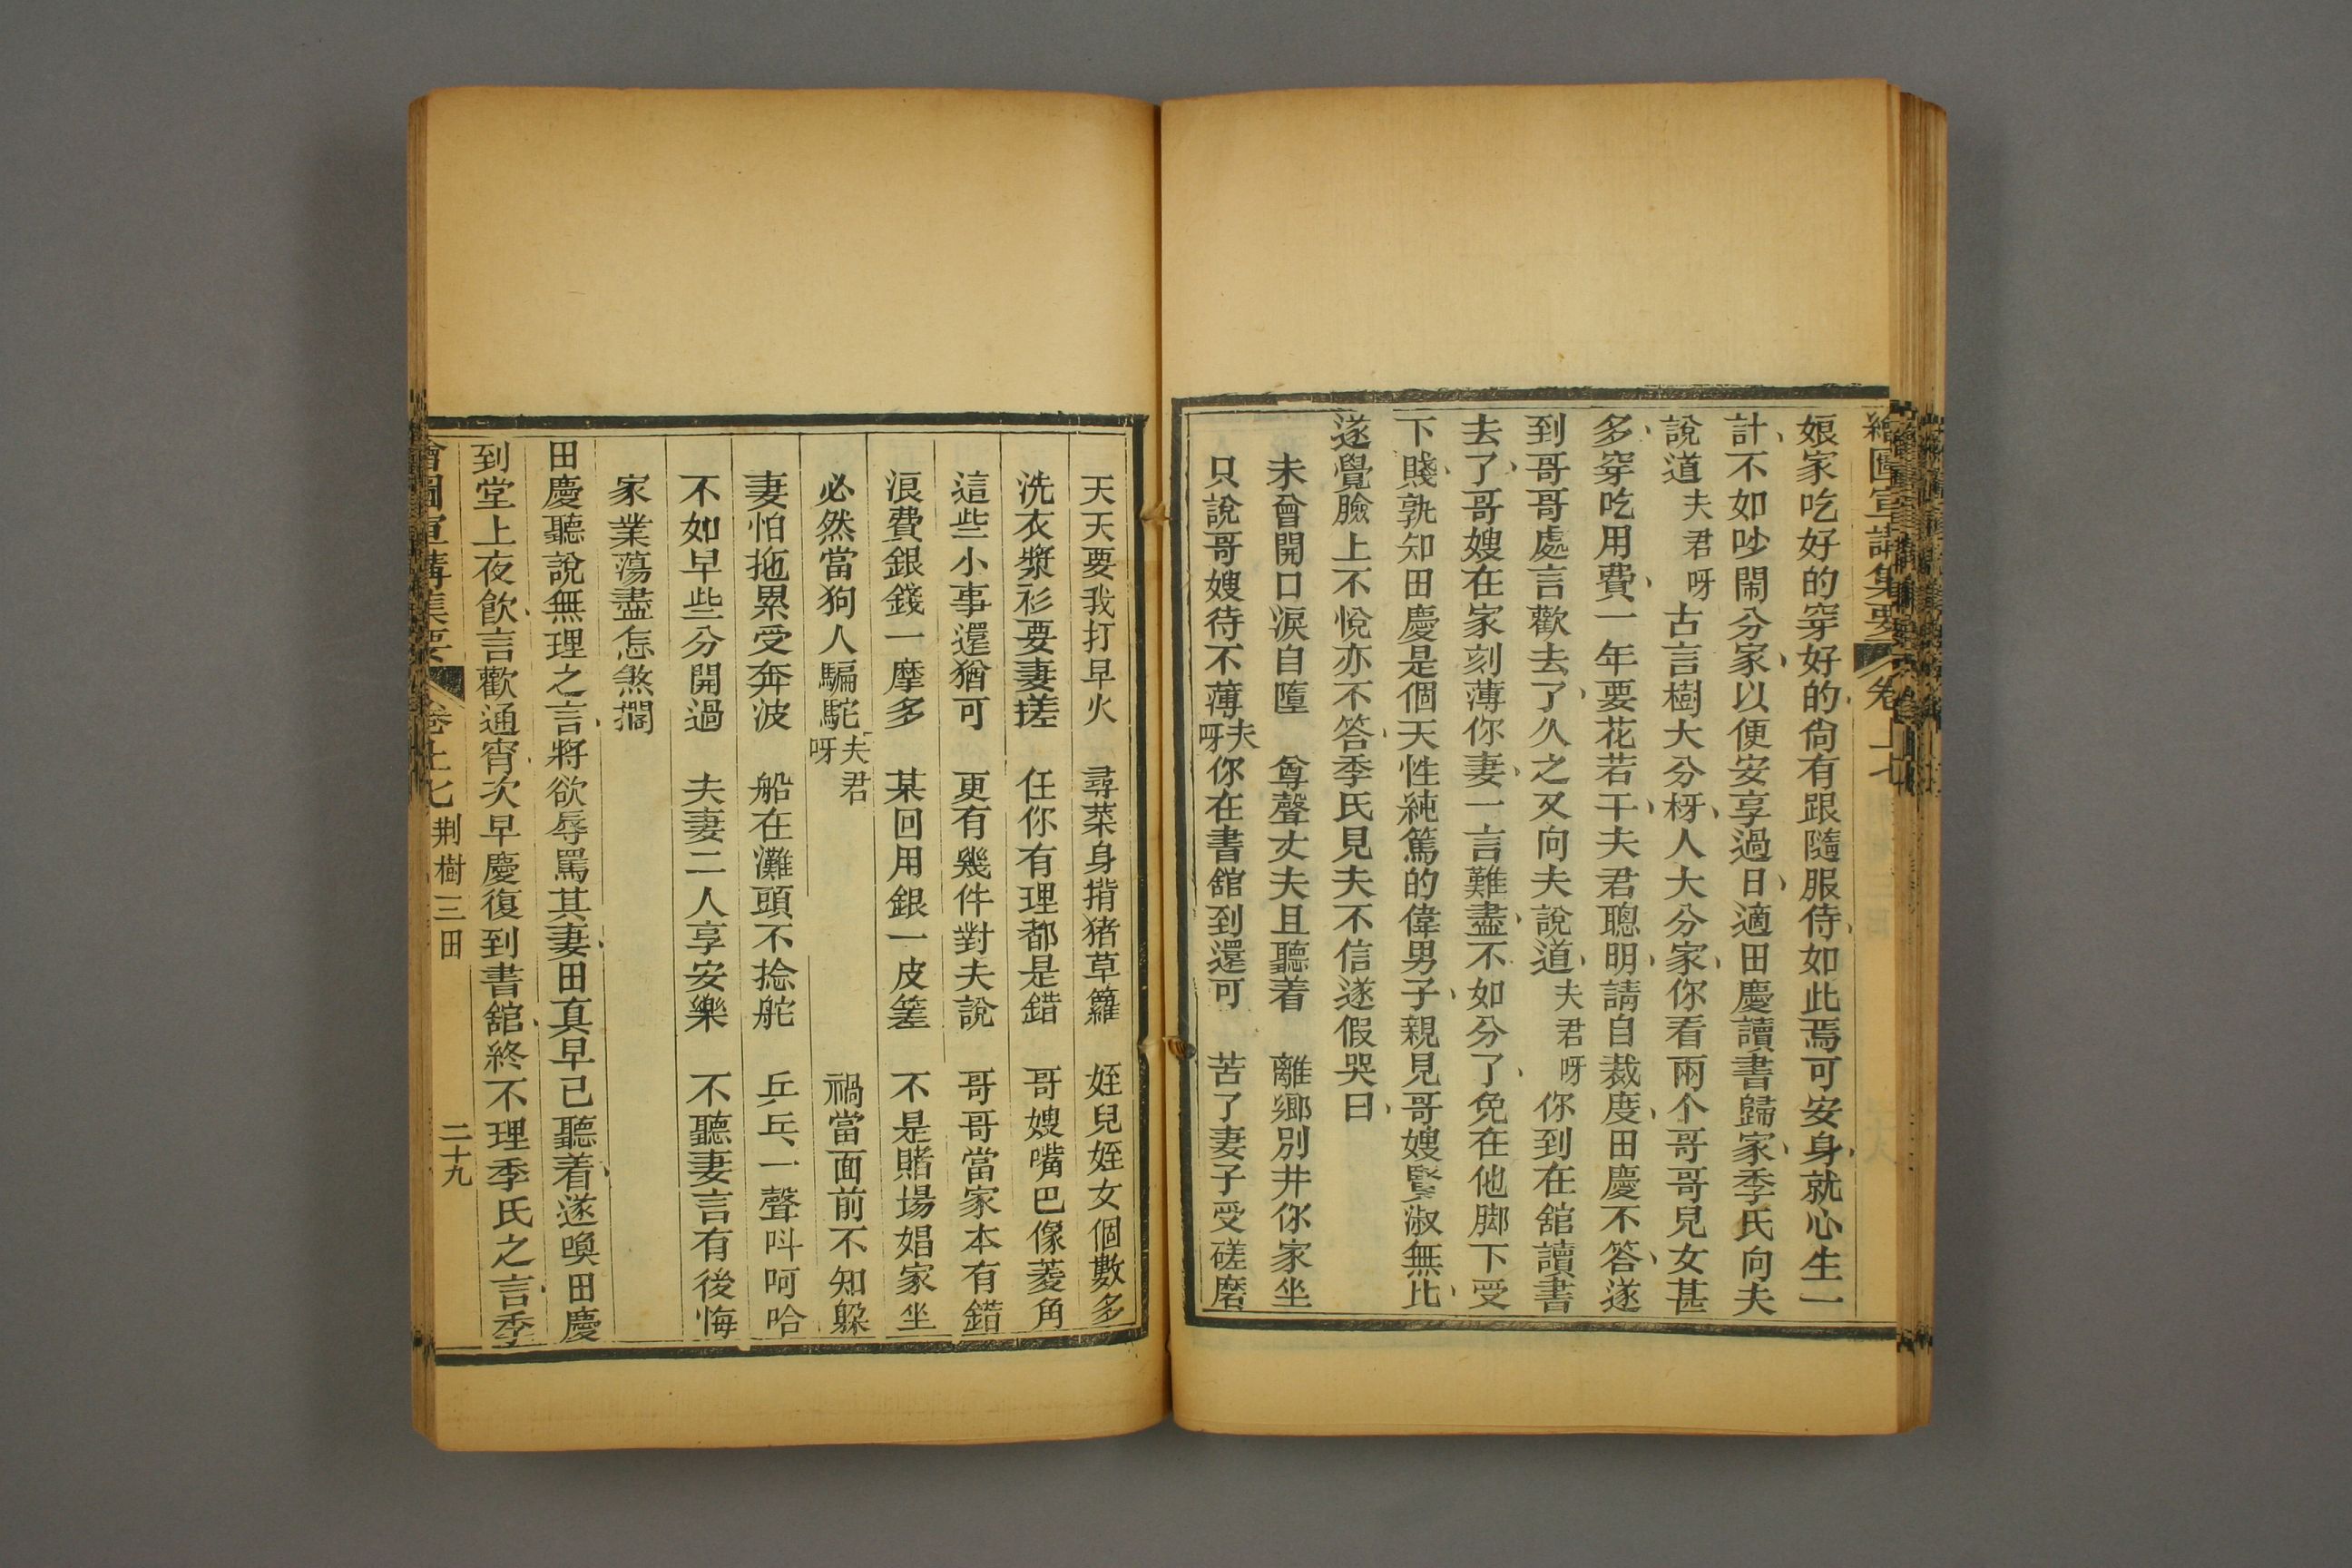 繪圖宣講集要 卷十七
娘家吃好的穿好的尙有跟隨服侍如此焉可安身就心生一
計不如吵鬧分家以便安享過日適田慶讀書歸家季氏向夫
說道夫君呀古言樹大分枒人大分家你看兩个哥哥兒女甚
多穿吃用費一年要花若干夫君聰明請自裁度田慶不答遂
到哥哥處言歡去了久之又向夫說道夫君呀你到在舘讀書
去了哥嫂在家刻薄你妻一言難盡不如分了免在他脚下受
下賤孰知田慶是個天性純篤的偉男子親見哥嫂賢淑無比
遂覺臉上不悅亦不答季氏見夫不信遂假哭曰
未曾開口淚自墮 尊聲丈夫且聽着 離鄉別井你家坐
只說哥嫂待不薄夫呀你在書舘到還可 苦了妻子受磋磨
天天要我打早火 尋菜身揹猪草籮 姪兒姪女個數多
洗衣漿衫要妻搓 任你有理都是錯 哥嫂嘴巴像菱角
這些小事還猶可 更有幾件對夫說 哥哥當家本有錯
浪費銀錢一摩多 某回用銀一皮籆 不是賭場娼家坐
必然當狗人騙駝夫君呀 禍當面前不知躱
妻怕拖累受奔波 船在灘頭不捻舵 乒乓一聲呌呵哈
不如早些分開過 夫妻二人享安樂 不聽妻言有後悔
家業蕩盡怎煞擱
田慶聽說無理之言將欲辱罵其妻田真早已聽着遂喚田慶
到堂上夜飮言歡通宵次早慶復到書舘終不理季氏之言季
會圖宣講集要 卷十七 荆樹三田 二十九